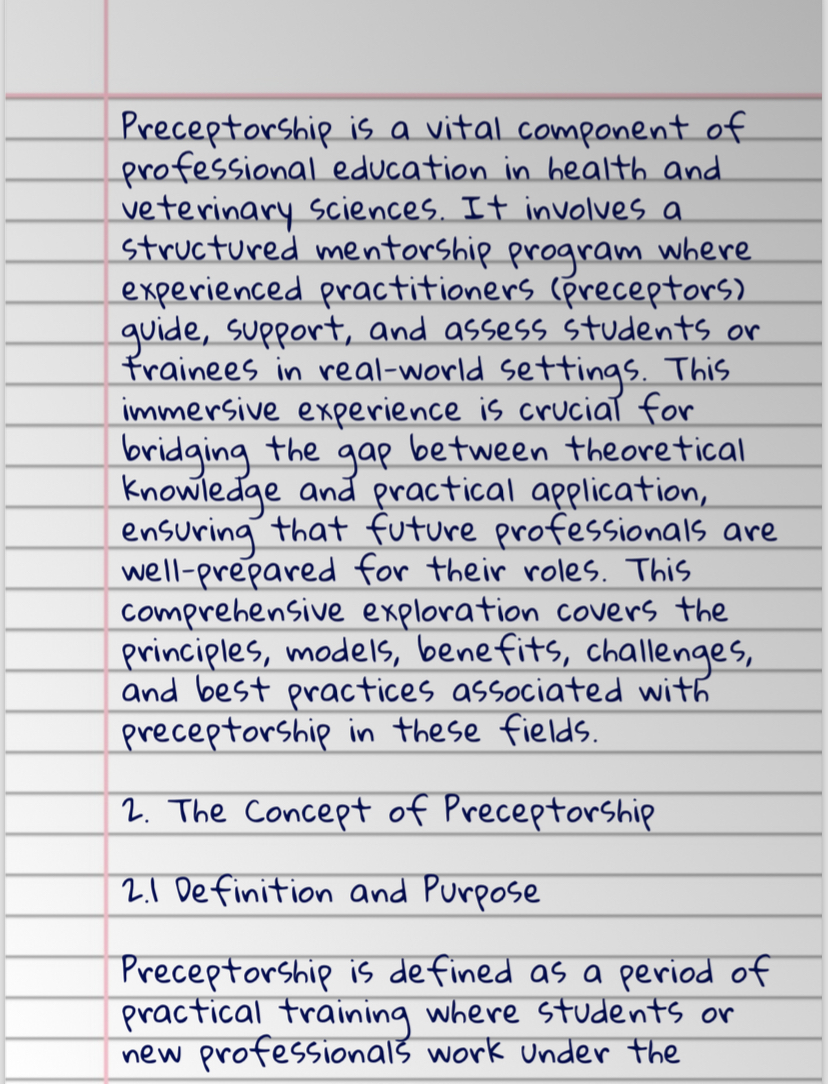 Preceptorship is a vital component of
professional education in health and
veterinary sciences. It involves a
structured mentorship program where
experienced practitioners (preceptors)
guide, support, and assess students or
trainees in real-world settings. This
immersive experience is crucial for
bridging the gap between theoretical
knowledge and practical application,
ensuring that future professionals are
well-prepared for their roles. This
comprehensive exploration covers the
principles, models, benefits, challenges,
and best practices associated with
preceptorship in these fields.
2. The Concept of Preceptorship
2.1 Definition and Purpose
Preceptorship is defined as a period of
practical training where students or
new professionals work under the